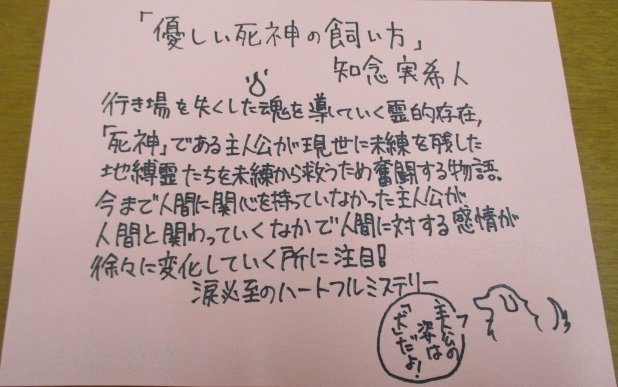 「優しい死神の飼い方」
知念実希人
行き場を失くした魂を導していく霊的存在,
「死神」である主人公が現世に未練を残した
地縛霊たちを未練から救うため奮闘する物語。
今まで人間に関心を持っていなかった主人公が
人間と関わっていくなかで人間に対する感情が
徐々に変化していく所に注目!
涙必至のハートフルミステリー
主人公の
姿は
「犬」だよ!